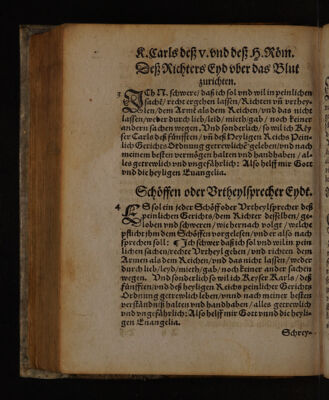 K. Carls deß v. vnd deß H. Röm.
Deß Richters Eyd vber das Blut
zurichten.
3 Ich N. schwere / daß ich sol vnd wil in peinlichen
sachẽ / recht ergehen lassen / Richten vñ vrthey-
len / dem Armẽ als dem Reichen / vnd das nicht
lassen / weder durch lieb / leid / mieth / gab / noch keiner
andern sachen wegen. Vnd sonderlich / so wil ich Key
ser Carls deß fünfften / vñ deß Heyligen Reichs Pein-
lich Gerichts Ordnung getrewlichẽ geleben / vnd nach
meinem besten vermögen halten vnd handhaben / al-
les getrewlich vnd vngefährlich: Also helff mir Gott
vnd die heyligen Euangelia.
Schöffen oder Vrtheylsprecher Eydt.
4 Es sol ein jeder Schöff oder Vrtheylsprecher deß
peinlichen Gerichts / dem Richter desselben / ge-
loben vnd schweren / wie hernach volgt / welche
pflicht jhm dem Schöffen vorgelesen / vnd er also nach
sprechen soll: ¶ Ich schwer daß ich sol vnd wil in pein
lichen sachen / rechte Vrtheyl geben / vnd richten dem
Armen als dem Reichen / vnd das nicht lassen / weder
durch lieb / leyd / mieth / gab / noch keiner ander sachen
wegen. Vnd sonderlich so wil ich Keyser Karls / deß
fünfften / vnd deß heyligen Reichs peinlicher Gerichts
Ordnung getrewlich leben / vnnd nach meiner besten
verständnuß halten vnd handhaben / alles getrewlich
vnd vngefährlich: Also helff mir Gott vnnd die heyli-
gen Euangelia.
Schrey-